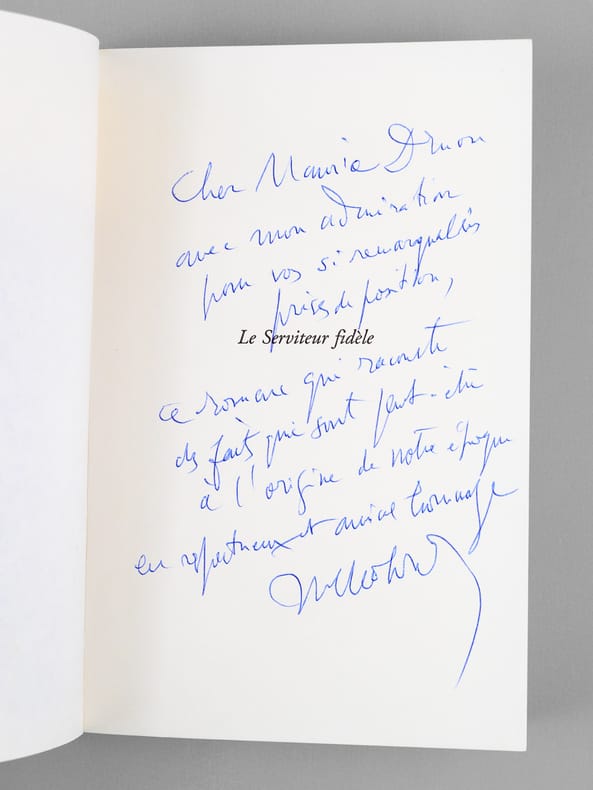 Cher Maurice Druon
avec mon admiration
pour vos si remarquables
prises de position,
Le Serviteur fidèle
ce roman qui raconte
des faits qui sont peut-être
à l'origine de notre époque
en respectueux et amical hommage